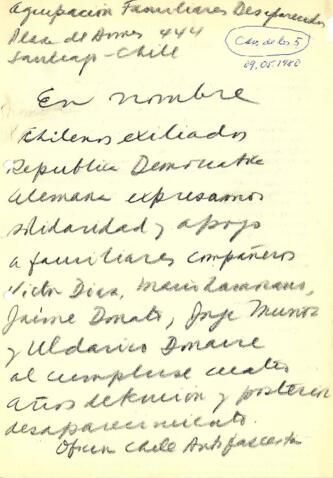 Agrupación Familiares Desaparecidos
Plaza de Armas 444
Santiago - Chile
Caso de los 5
09.05.1980
En nombre
chilenos exiliados
Republica Democratica
Alemana expresamos
solidaridad y apoyo
a familiares compañeros
Victor Diaz, Mario Zamorano,
Jaime Donato, Jorge Muñoz
y Uldarico Donaire
al cumplirse cuatro
años detención y posterior
desaparecimiento.
Oficin Chile Antifascista